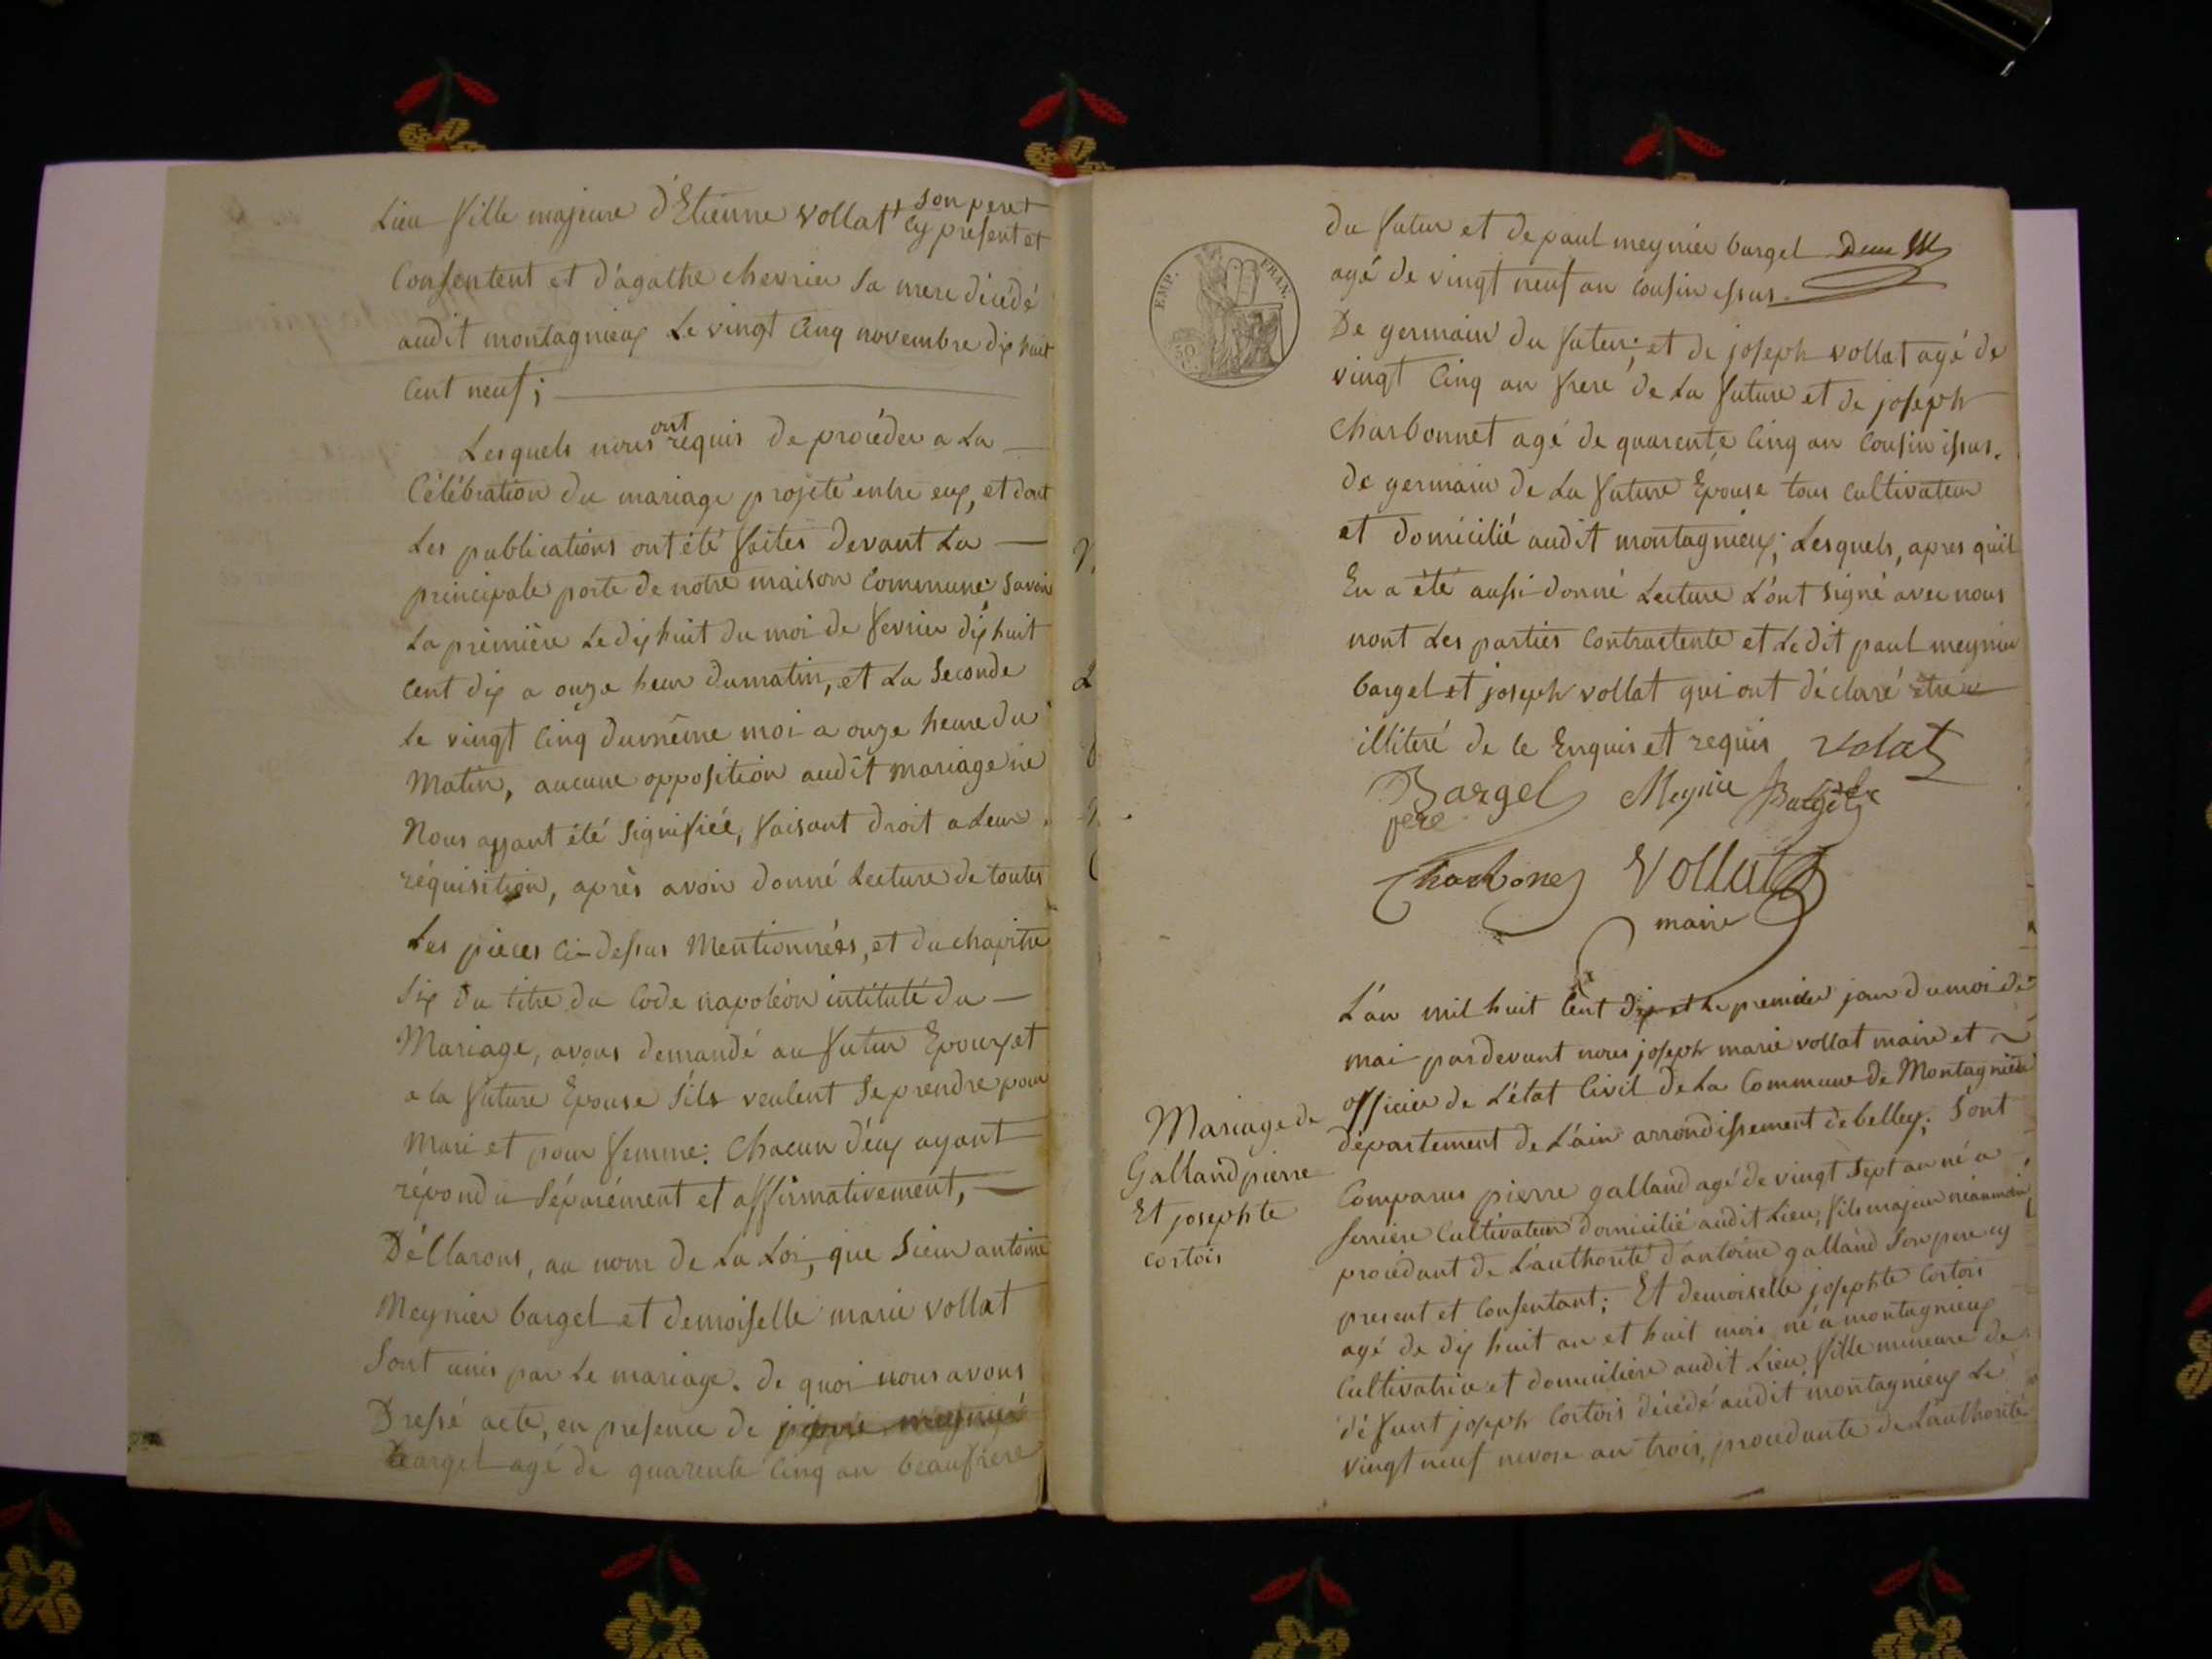 Lieu fille majeure d'Etienne vollat son pere
cy present et
Consentent et d'agathe chevrier sa mere décédé
audit montagnieux Le vingt Cinq novembre dix huit
Cent neuf ;
Lesquels nous ont requis de procéder a La
Célébration du mariage projeté entre eux, et dont
Les publications ont été faites devant La
principale porte de notre maison Commune savoir
La première Le dix huit du moi de fevrier dix huit
Cent dix a onze heur du matin, et La Seconde
Le vingt Cinq du même moi a onze heure du
Matin, aucune opposition audit mariage ne
Nous ayant été signifiée, faisant droit a Leur
réquisition, après avoir donné Lecture de toutes
Les pieces Ci-dessus Mentionnées, et du chapitre
Six du titre du Code napoléon intitulé du
Mariage, avons demandé au futur Epoux et
a la future Epouse S'ils veulent Se prendre pour
Mari et pour femme : Chacun d'eux ayant
répondu Séparément et affirmativement,
Déclarons, au nom de La Loi, que Sieur antoine
Meynier bargel et demoiselle marie vollat
Sont unis par Le mariage. de quoi nous avons
Dressé acte, en présence de pierre meynier
bargel agé de quarente Cinq an beaufrere
EMP. FRAN.
50
C.
du futur et de paul meynier bargel
agé de vingt neuf an Cousin issus.
De germain du futur ; et de joseph vollat agé de
vingt Cinq an frere de La future et de joseph
Charbonnet agé de quarente Cinq an Cousin issus.
de germain de La future Epouse tous Cultivateur
et domicilié audit montagnieux ; Lesquels, apres qu'il
En a été aussi donné Lecture L'ont signé avec nous
nont Les parties Contractente et Le dit paul meynier
bargel et joseph vollat qui ont déclaré être
illiteré de Ce Enquis et requis Volat
Bargel Meynie Bargel
pere
Charbone Vollat
maire
Mariage de
Galland pierre
Et josephte
Cortois
L'an mil huit Cent dix et Le premier jour du moi de
mai pardevant nous joseph marie vollat maire et
officier de L'état Civil de La Commune de Montagnieu
département de L'ain arrondissement de belley ; S'ont
Comparus pierre galland agé de vingt Sept an né a
serriere Cultivateur domicilié audit Lieu, fils majeur néanmoin
procédant de L'authorité d'antoine galland Son pere cy
present et Consentant ; Et demoiselle josephte Cortois
agé de dix huit an et huit mois né a montagnieux
Cultivatrice et domiciliere audit Lieu, fille mineure de
défunt joseph Cortois décédé audit montagnieux Le
vingt neuf nivose an trois, procedante de L'authorité